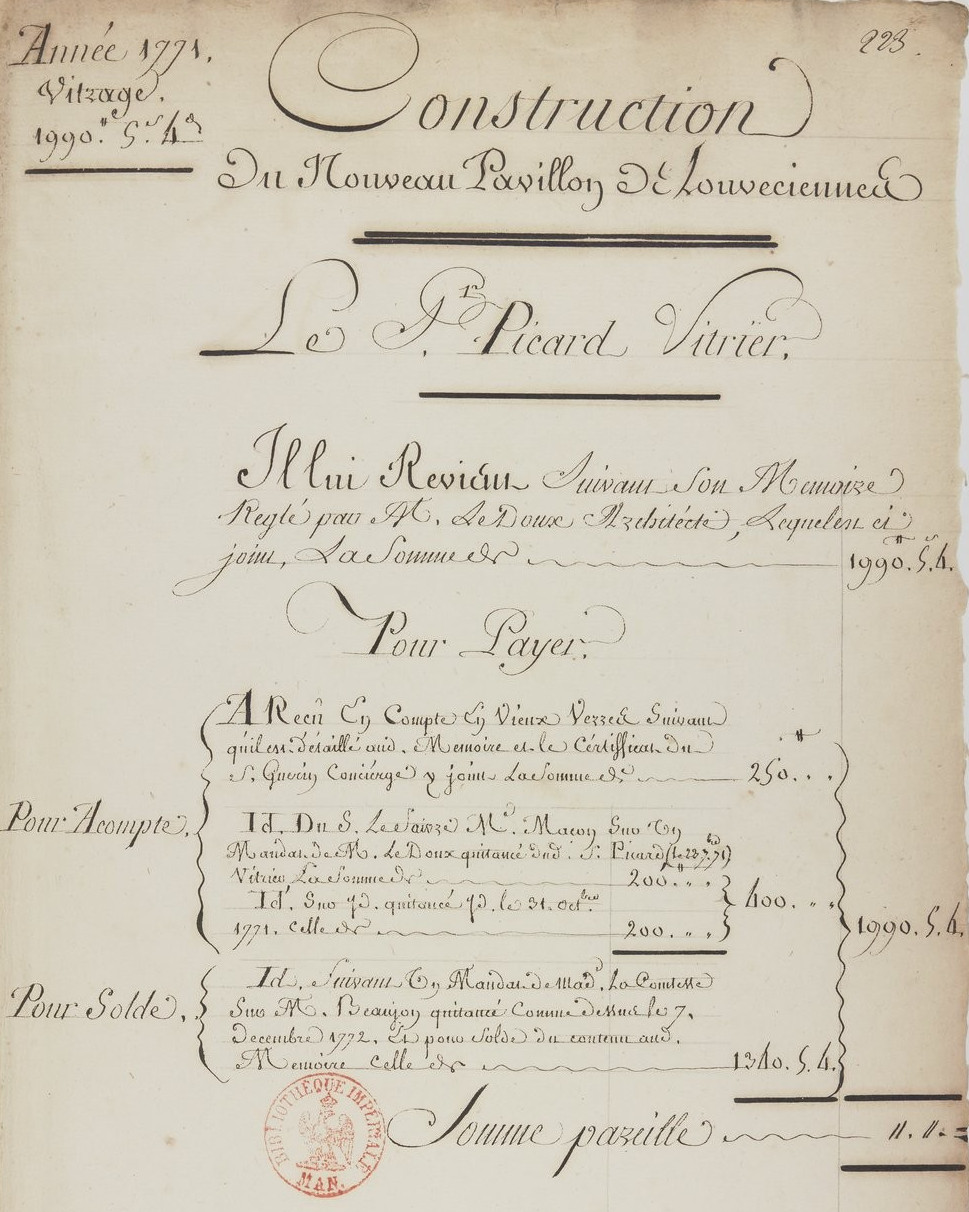 Année 1771.
Vitrage.
1990.ᴴ 5.ˢ 4ᵈ
223.
Construction
Du Nouveau Pavillon De Louveciennes
Le S.ʳ Picard Vitrier.
Il lui Revient Suivant Son Memoire
Reglé par M. Le Doux Architecte, Lequel est ci
joint, La Somme de 1990.ᴴ 5.ˢ 4.
Pour Payer.
Pour Acompte.
A Recû En Compte En Vieux Verres Suivant
qu'il est détaillé aud. Memoire et le Certifficat du
S. Guerin Concierge y joint La Somme de 250.ᴴ . .
Id. Du S. Le Faivre Mᵈ. Maçon Sur Un
Mandat de M. Le Doux quitancé dud. S. Picard (le 23. 7.ᵇ 71)
Vitrier La Somme de 200.ᴴ " "
400. " "
Id. Sur Jd. quitancé Jd. le 31. Octᵇʳᵉ
1771. Celle de 200. " "
1990. 5. 4.
Pour Solde.
Id. Suivant Un Mandat de Madᵉ. La Comtesse
Sur M. Beaujon quitancé Comme dessus le 7.
Decembre 1772. Et pour Solde du contenu aud.
Memoire Celle de 1340. 5. 4.
Somme pareille ". ". =
BIBLIOTHÈQUE IMPÉRIALE
MAN.